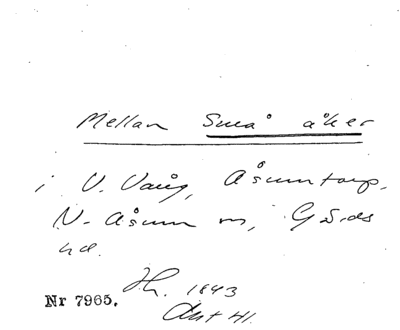 Mellan Små åker
i V. Vång, Åsumtorp,
N. Åsum sn, Gärds
hd.
Nr 7965.
Hl. 1843
Akt 41.